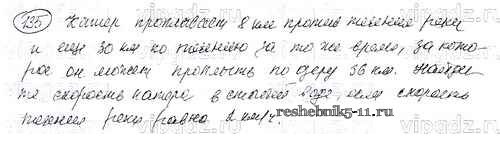 735 Катер проплывает 8 км против течения реки
и еще 30 км по течению за то же время, за кото-
рое он может проплыть по озеру 36 км. Найди-
те скорость катера в стоячей воде, если скорость
reshebnik5-11.ru
течения реки равна 2 км/ч.
vipadz.ru